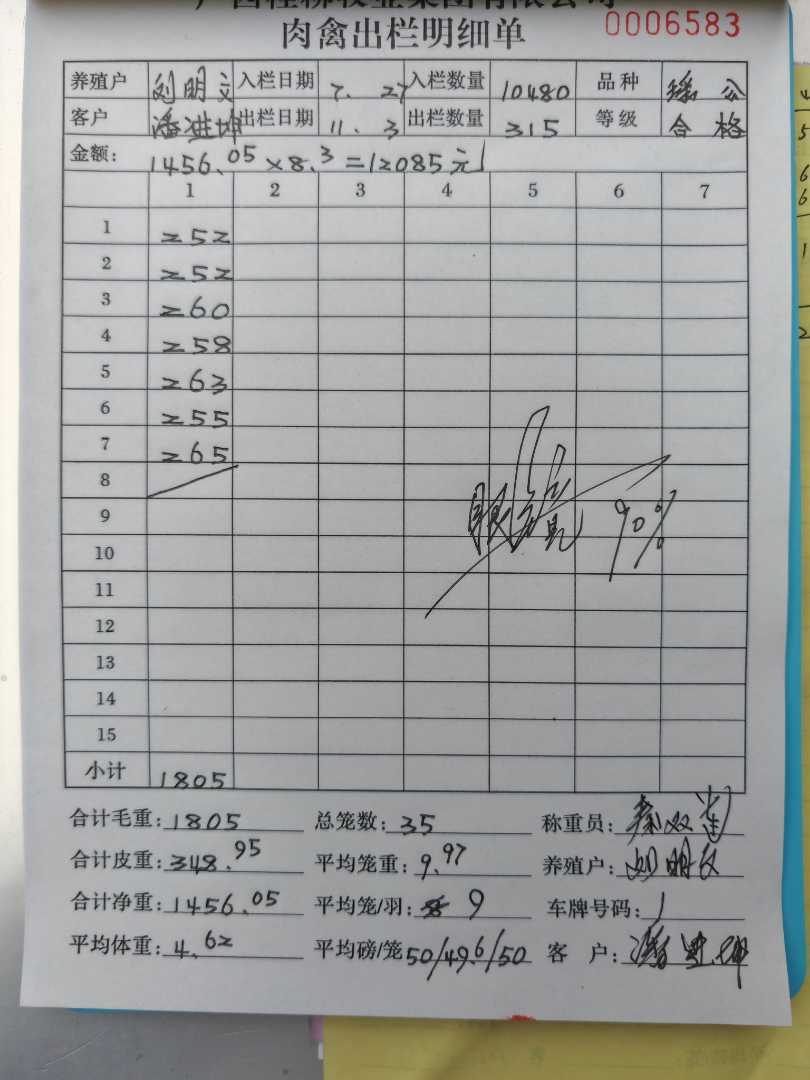 肉禽出栏明细单 0006583
养殖户 刘明文 入栏日期 7. 27 入栏数量 10480 品种 瑶公
客户 潘进坤 出栏日期 11. 3 出栏数量 315 等级 合格
金额: 1456.05×8.3=12085元
1 2 3 4 5 6 7
1 252
2 252
3 260
4 258
5 263
6 255
7 265
8
9
10
11
12
13
14
15
小计 1805
90%
合计毛重: 1805 总笼数: 35 称重员:
合计皮重: 348.95 平均笼重: 9.97 养殖户: 刘明文
合计净重: 1456.05 平均笼/羽: 9 车牌号码:
平均体重: 4.62 平均磅/笼 50/49.6/50 客 户: 潘进坤